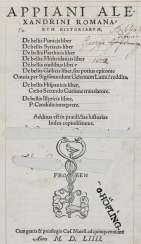 APPIANI ALE
XANDRINI ROMANA
RUM HISTORIARUM,
De bellis Punicis liber
De bellis Syriacis liber
De bellis Parthicis liber
De bellis Mithridaticis liber
De bellis ciuilibus libri
De bellis Gallicis liber, seu potius epitome
Omnia per Sigismundum Gelenium Latine reddita.
De bellis Hispanicis liber,
Cælio Secundo Curione translatore.
De bellis Illyricis liber,
P. Candido interprete.
Additus est in præstātiss. historias
Index copiosissimus.
FRO BEN
HÖPLING.
Cum gratia & priuilegio Cæs. Maiest. ad quinquennium
M. D. LIIII.